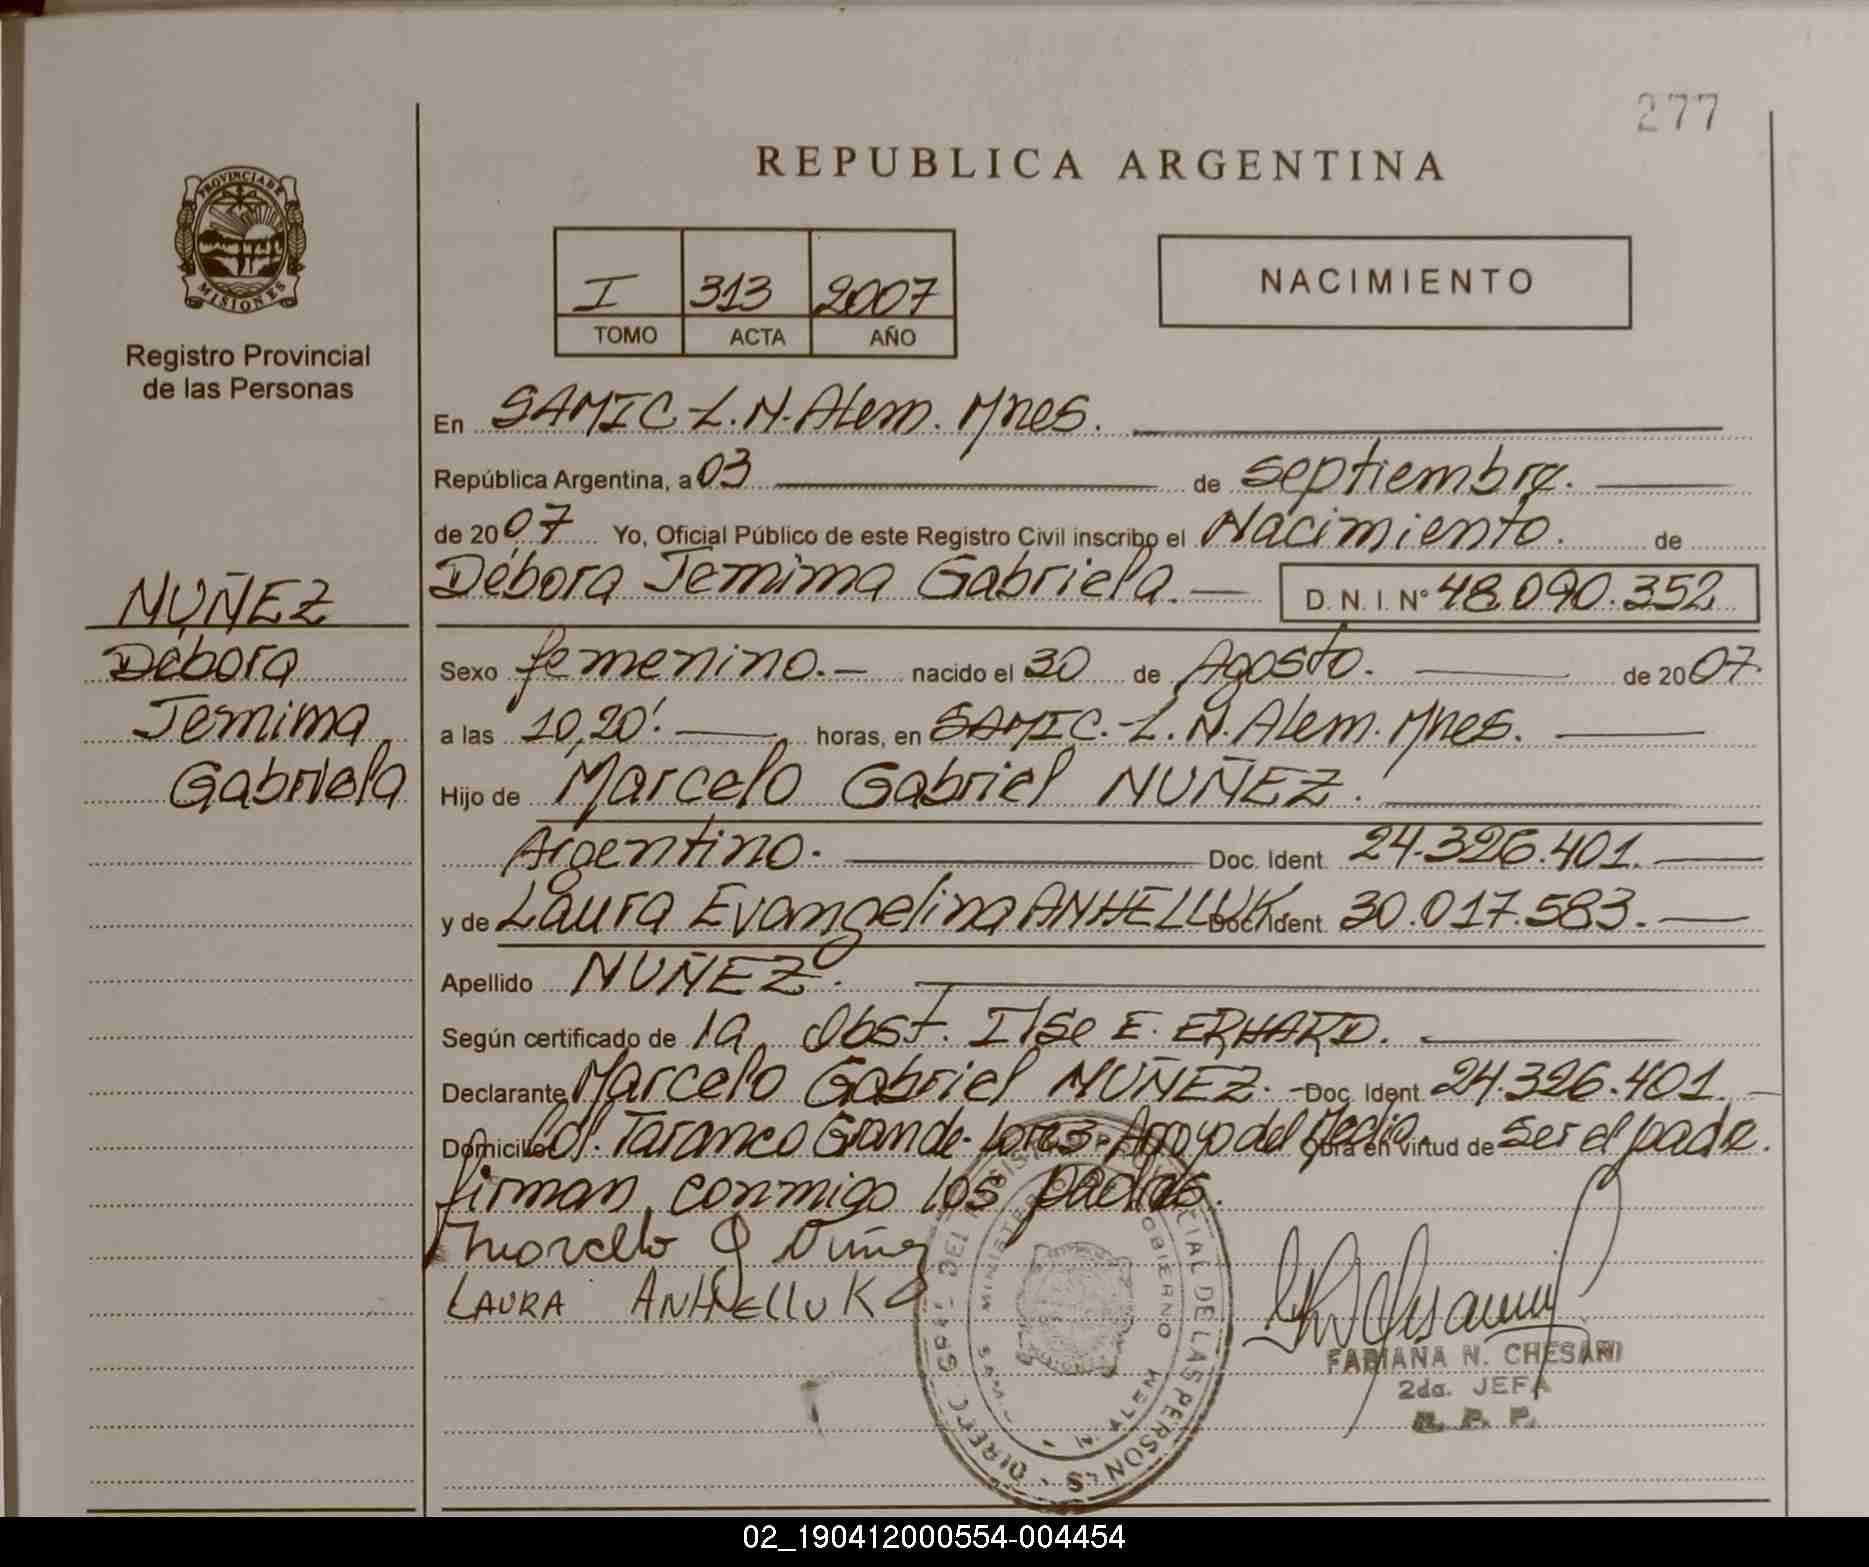 277
REPUBLICA ARGENTINA
PROVINCIA DE
MISIONES
Registro Provincial
de las Personas
I 313 2007
TOMO ACTA AÑO
NACIMIENTO
En SAMIC-L.N.Alem. Mnes.
República Argentina, a 03 de septiembre.
de 2007 Yo, Oficial Público de este Registro Civil inscribo el Nacimiento. de
Débora Jemima Gabriela. D.N.I. Nº 48.090.352
NUÑEZ
Débora
Jemima
Gabriela
Sexo femenino.- nacido el 30 de Agosto. de 2007.
a las 10,20'. horas, en SAMIC.-L.N.Alem. Mnes.
Hijo de Marcelo Gabriel NUÑEZ.
Argentino. Doc. Ident. 24.326.401.
y de Laura Evangelina ANHELLUK Doc. Ident. 30.017.583.
Apellido NUÑEZ.
Según certificado de la Obst. Ilse E. ERHARD.
Declarante Marcelo Gabriel NUÑEZ.- Doc. Ident. 24.326.401.
Domicilio Col. Taranco Grande. Arroyo del Medio. Obra en virtud de ser el padre.
firman conmigo los padres.
Marcelo G Nuñez
LAURA ANHELLUK
FABIANA N. CHESANI
2da. JEFA
R. P. P.
DEL REGISTRO PROVINCIAL DE LAS PERSONAS
MINISTERIO GOBIERNO
N. ALEM
02_190412000554-004454